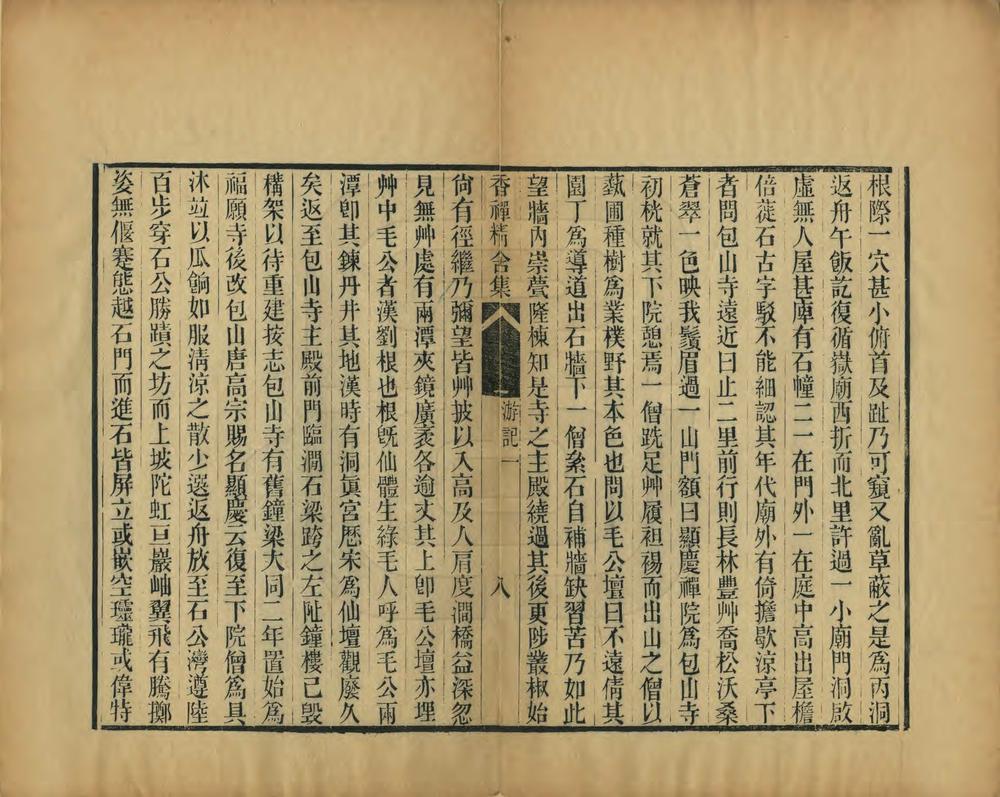 根際一穴甚小俯首及趾乃可窺又亂草蔽之是爲丙洞
返舟午飯訖復循嶽廟西折而北里許過一小廟門洞啟
虛無人屋甚庳有石幢二一在門外一在庭中高出屋檐
倍蓰石古字駁不能細認其年代廟外有倚擔歇涼亭下
者問包山寺遠近曰止二里前行則長林豐艸喬松沃桑
蒼翠一色映我鬚眉過一山門額曰顯慶禪院爲包山寺
初桄就其下院憩焉一僧跣足艸履袒裼而出山之僧以
蓺圃種樹爲業樸野其本色也問以毛公壇曰不遠倩其
園丁爲導道出石牆下一僧絫石自補牆缺習苦乃如此
望牆內崇甍隆棟知是寺之主殿繞過其後更陟叢椒始
香禪精舍集
游記一
八
尙有徑繼乃彌望皆艸披以入高及人肩度澗橋益深忽
見無艸處有兩潭夾鏡廣袤各逾丈其上卽毛公壇亦埋
艸中毛公者漢劉根也根旣仙體生綠毛人呼爲毛公兩
潭卽其鍊丹井其地漢時有洞眞宮歷宋爲仙壇觀廢久
矣返至包山寺主殿前門臨澗石梁跨之左阯鐘樓已毀
構架以待重建按志包山寺有舊鐘梁大同二年置始爲
福願寺後改包山唐高宗賜名顯慶云復至下院僧爲具
沐竝以瓜餉如服淸涼之散少選返舟放至石公灣遵陸
百步穿石公勝蹟之坊而上坡陀虹亘巖岫翼飛有騰擲
姿無偃蹇態越石門而進石皆屏立或嵌空瓏瓏或偉特